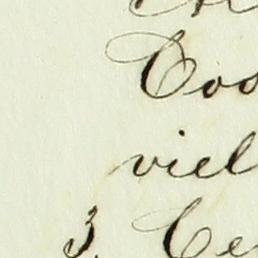 Coo
viel
3. Ce